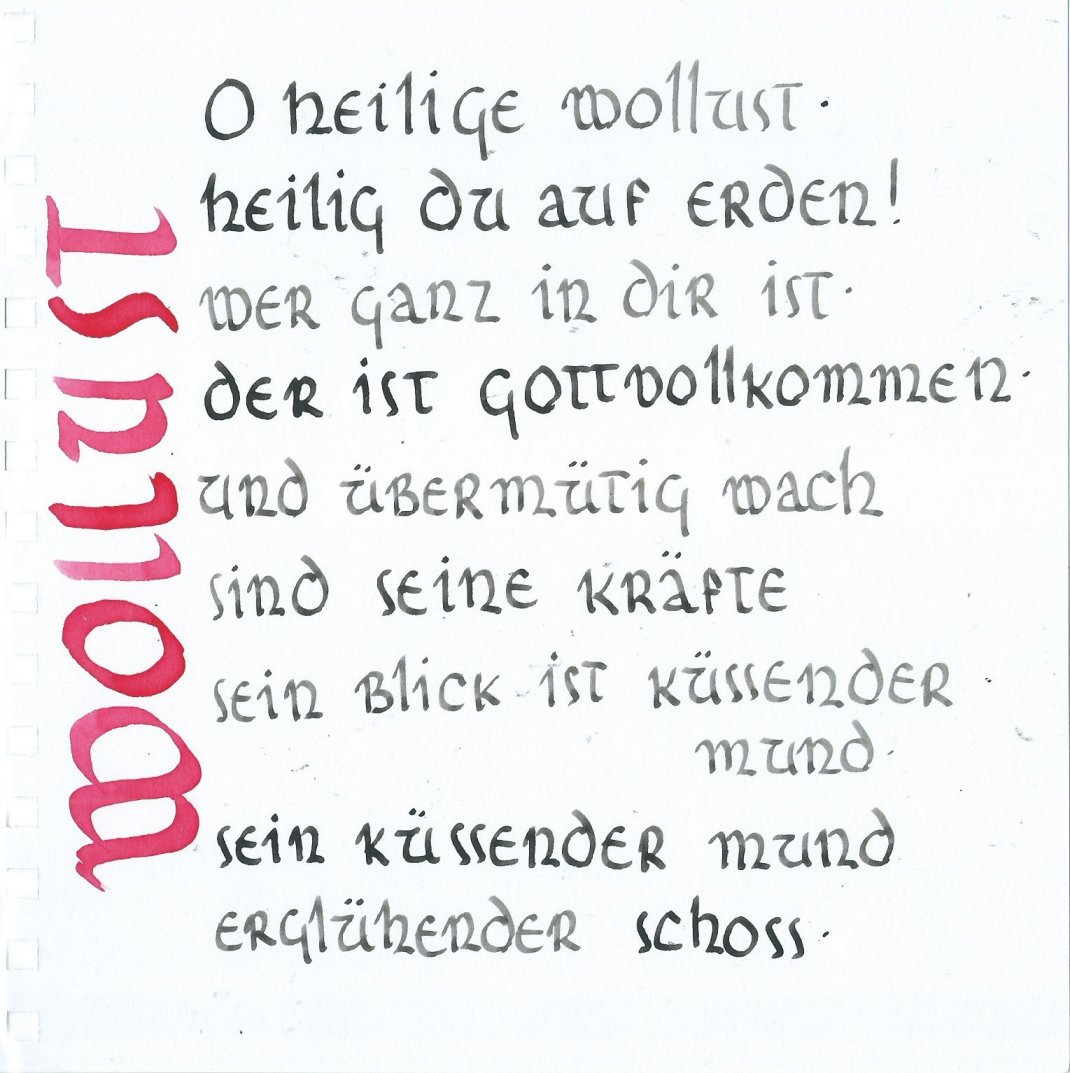 wollust
O heilige wollust ·
heilig du auf erden!
wer ganz in dir ist ·
der ist gottvollkommen ·
und übermütig wach
sind seine kräfte
sein blick ist küssender
mund ·
sein küssender mund
erglühender schoss ·